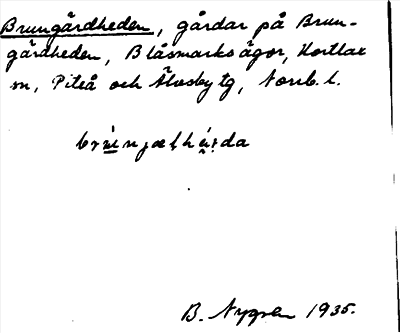 Brungårdheden, gårdar på Brun-
gårdheden, Blåsmarks ägor, Hortlax
sn, Piteå och Älvsby tg, Norrb. l.
B. Nygren 1935.